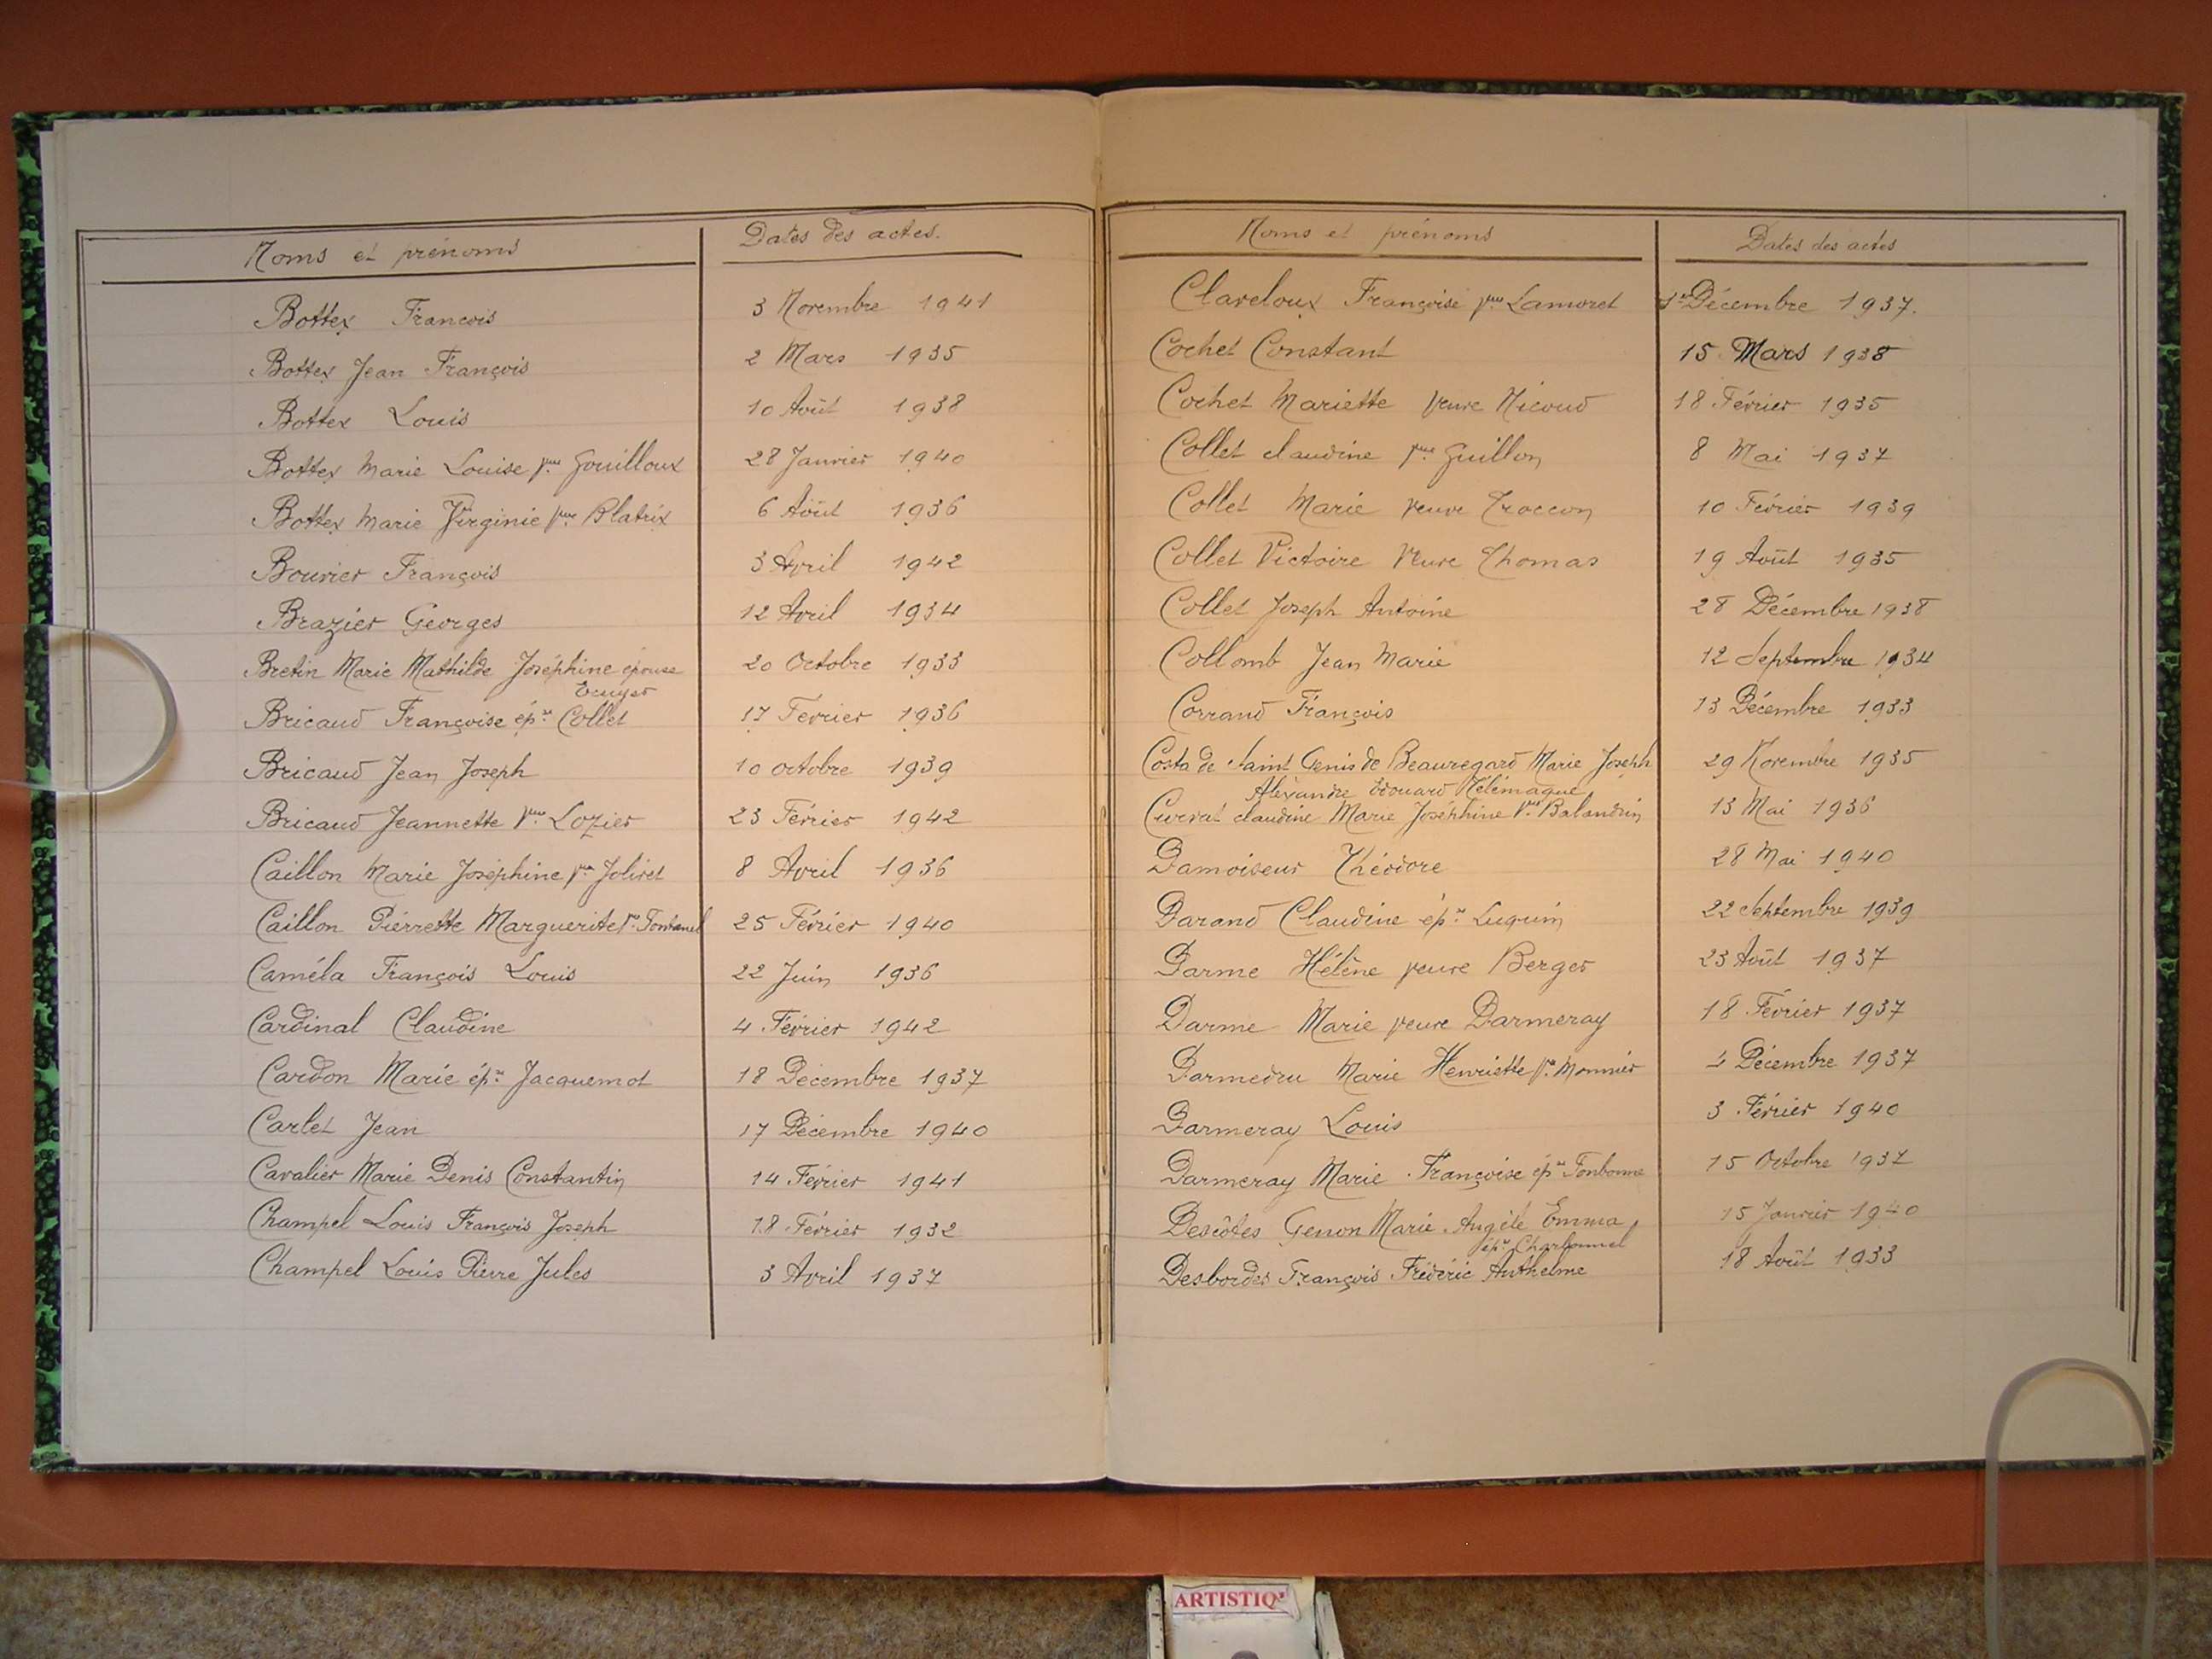 Noms et prénoms Dates des actes.
Bottex François 3 Novembre 1941
Bottex Jean François 2 Mars 1935
Bottex Louis 10 Août 1938
Bottex Marie Louise Vve Gouilloux 28 Janvier 1940
Bottex Marie Virginie Vve Blatrix 6 Août 1936
Bouvier François 3 Avril 1942
Brazier Georges 12 Avril 1934
Bretin Marie Mathilde Joséphine épouse 20 Octobre 1933
Ecuyer
Bricaud Françoise épse Collet 17 Fevrier 1936
Bricaud Jean Joseph 10 octobre 1939
Bricaud Jeannette Vve Lozier 23 Février 1942
Caillon Marie Joséphine Vve Jolivet 8 Avril 1936
Caillon Pierrette Marguerite Ve Fontanel 25 Février 1940
Caméla François Louis 22 Juin 1936
Cardinal Claudine 4 Février 1942
Cardon Marie épse Jacquemot 18 Décembre 1937
Carlet Jean 17 Décembre 1940
Cavalier Marie Denis Constantin 14 Février 1941
Champel Louis François Joseph 18 Février 1932
Champel Louis Pierre Jules 3 Avril 1937
Noms et prénoms Dates des actes
Claveloux Françoise Vve Lamoret 1er Décembre 1937.
Cochet Constant 15 Mars 1938
Cochet Mariette Veuve Nicoud 18 Février 1935
Collet claudine Vve Guillon 8 Mai 1937
Collet Marie Veuve Troccon 10 Février 1939
Collet Victoire Veuve Thomas 19 Août 1935
Collet Joseph Antoine 28 Décembre 1938
Collomb Jean Marie 12 Septembre 1934
Corrand François 13 Décembre 1933
Costa de Saint Genis de Beauregard Marie Joseph 29 Novembre 1935
Alexandre Edouard Télémaque
Curvat claudine Marie Joséphine Vve Balandrin 13 Mai 1936
Damoiseur Théodore 28 Mai 1940
Darand Claudine épse Luquin 22 Septembre 1939
Darme Hélène veuve Berger 23 Août 1937
Darme Marie veuve Darmeray 18 Février 1937
Darmedru Marie Henriette Ve Monnier Décembre 1937
Darmeray Louis 3 Février 1940
Darmeray Marie Françoise épse Fonbonne 15 Octobre 1937
Descôtes Genon Marie Angèle Emma 15 Janvier 1940
épse Charbonnel
Desbordes François Frédéric Anthelme 18 Août 1933
ARTISTIQ